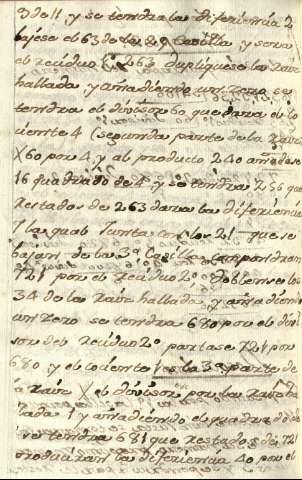 9 de 11, y se tendra la diferiencia 2
bajese el 63 de la 2ª Casilla, y sera
el residuo 263 dupliquese la Raiz
hallada, y añadiendo un zero se
tendra el divisor 60 que dara el co
ciente 4 (segunda parte de la Raiz
X 60 por 4 y al producto 240 añadase
16 quadrado de 4 y se tendra 256 que
restados de 263 dara la diferiencia
7 la qual junta con los 21 que se
bajan de la 3ª Casilla compondran
721 por el residuo 2º doblense los
34 de la Raiz hallada, y añadiendo
un zero se tendra 680 por el divi
sor del residuo 2º partase 721 por
680 y el cociente 1 es la 3ª parte de
la Raiz X el divisor por la Raiz ha
llada 1 y añadiendo el quadrado de
se tendra 681 que restados de 721
produciran la diferiencia 40 por el